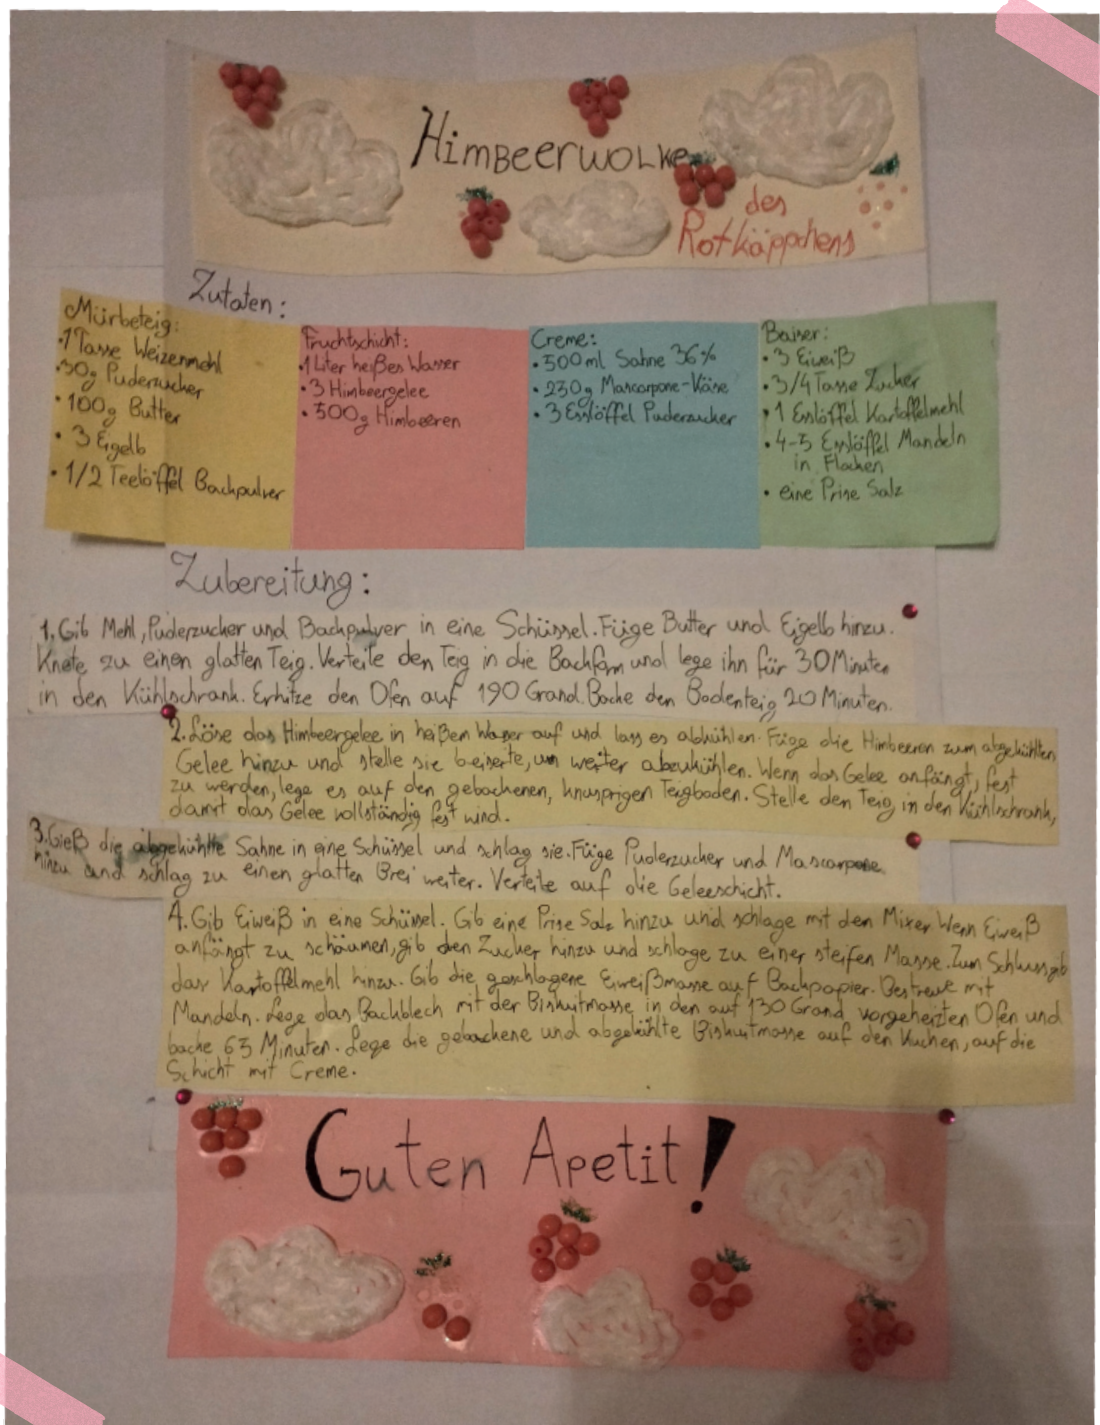 Himbeerwolke
des
Rotkäppchens
Zutaten:
Mürbeteig:
•1 Tasse Weizenmehl
•50g Puderzucker
•100g Butter
• 3 Eigelb
• 1/2 Teelöffel Backpulver
Fruchtschicht:
•1 Liter heißes Wasser
•3 Himbeergelee
•500g Himbeeren
Creme:
•500ml Sahne 36%
•250g Mascarpone-Käse
•3 Esslöffel Puderzucker
Baiser:
•3 Eiweiß
•3/4 Tasse Zucker
•1 Esslöffel Kartoffelmehl
•4-5 Esslöffel Mandeln
in Flocken
• eine Prise Salz
Zubereitung:
1. Gib Mehl, Puderzucker und Backpulver in eine Schüssel. Füge Butter und Eigelb hinzu.
Knete zu einen glatten Teig. Verteile den Teig in die Backform und lege ihn für 30 Minuten
in den Kühlschrank. Erhitze den Ofen auf 190 Grand. Backe den Bodenteig 20 Minuten.
2. Löse das Himbeergelee in heißem Wasser auf und lass es abkühlen. Füge die Himbeeren zum abgekühlten
Gelee hinzu und stelle sie beiserte, um weiter abzukühlen. Wenn das Gelee anfängt, fest
zu werden, lege es auf den gebackenen, knusprigen Teigboden. Stelle den Teig in den Kühlschrank,
damit das Gelee vollständig fest wird.
3. Gieß die abgekühlte Sahne in eine Schüssel und schlag sie. Füge Puderzucker und Mascarpone
hinzu und schlag zu einen glatten Brei weiter. Verteile auf die Geleeschicht.
4. Gib Eiweiß in eine Schüssel. Gib eine Prise Salz hinzu und schlage mit den Mixer. Wenn Eiweiß
anfängt zu schäumen, gib den Zucker hinzu und schlage zu einer steifen Masse. Zum Schluss gib
das Kartoffelmehl hinzu. Gib die geschlagene Eiweißmasse auf Backpapier. Bestreue mit
Mandeln. Lege das Backblech mit der Biskuitmasse in den auf 130 Grand vorgeheizten Ofen und
backe 65 Minuten. Lege die gebackene und abgekühlte Biskuitmasse auf den Kuchen, auf die
Schicht mit Creme.
Guten Apetit!